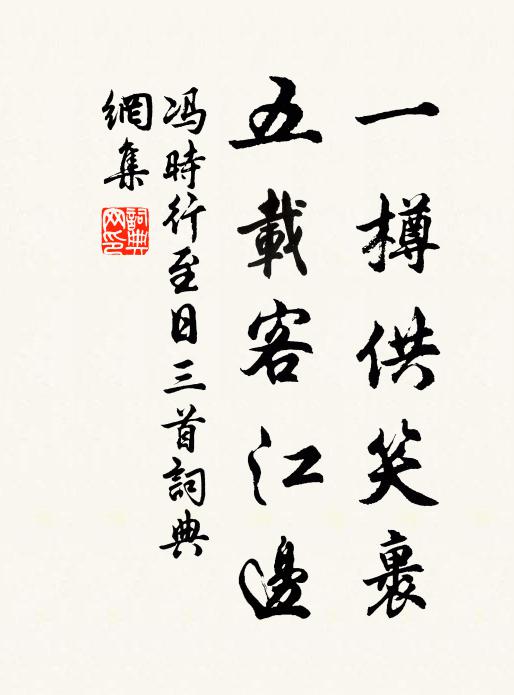 一樽供笑裏
五載客江邊
冯時行至日三首詞典
網集
詞典
网印